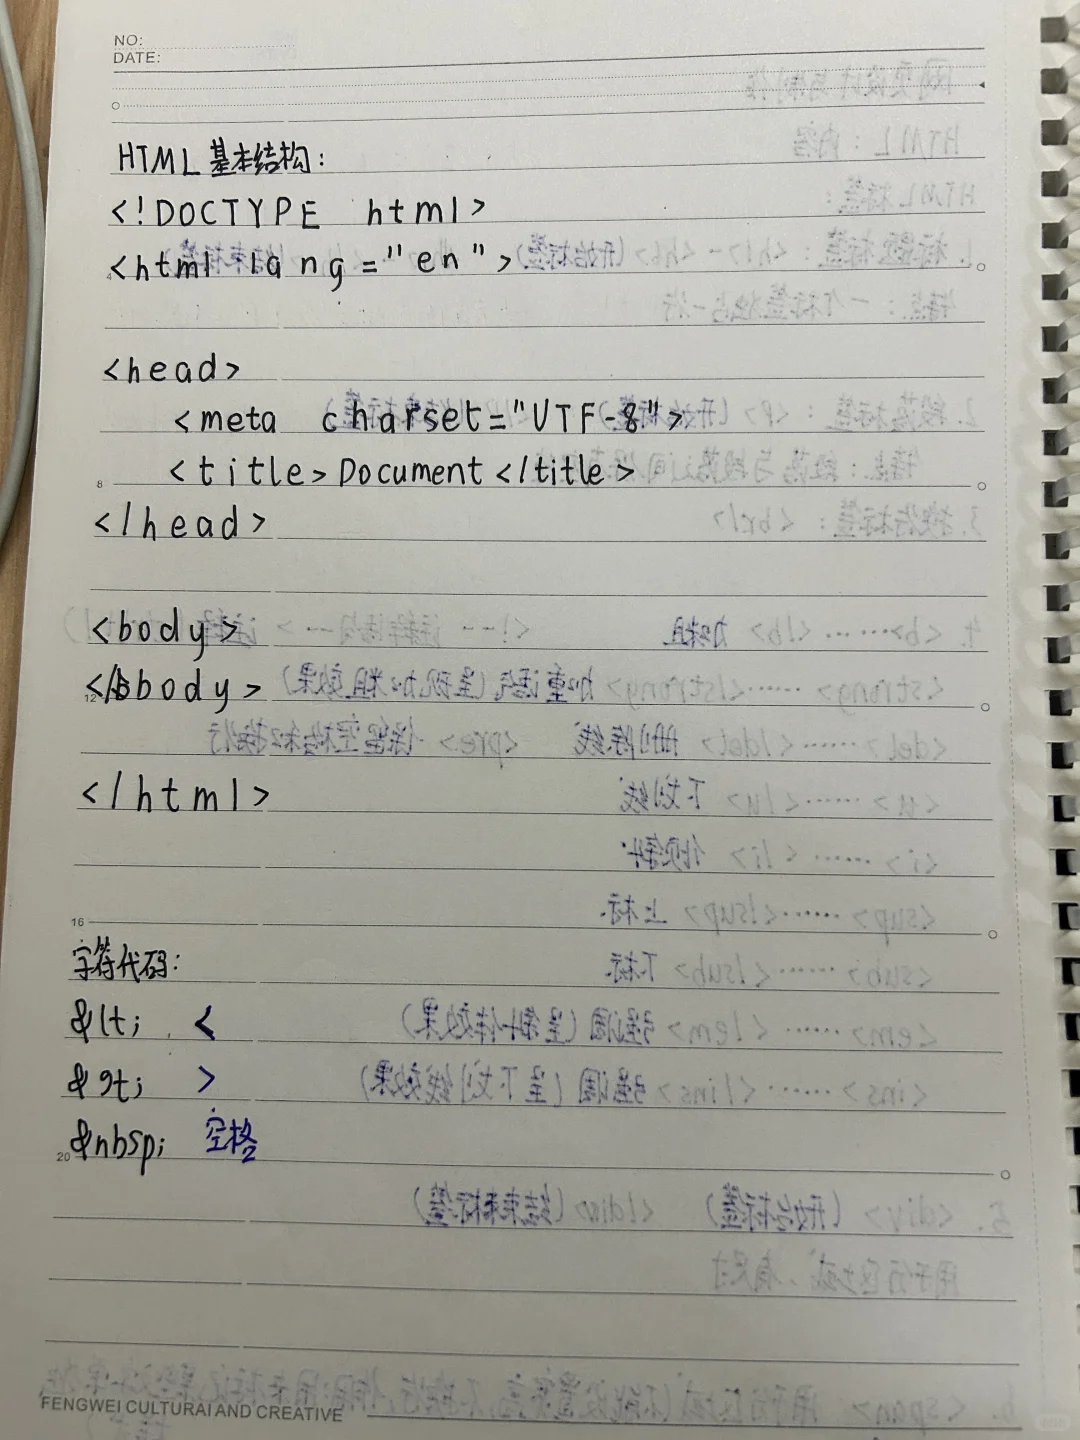 NO:
DATE:
HTML 基本结构:
<!DOCTYPE html>
<html lang="en">
4
<head>
<meta charset="UTF-8">
<title>Document</title>
8
</head>
<body>
</body>
12
</html>
16
字符代码:
&lt; <
&gt; >
&nbsp; 空格
20
FENGWEI CULTURAI AND CREATIVE